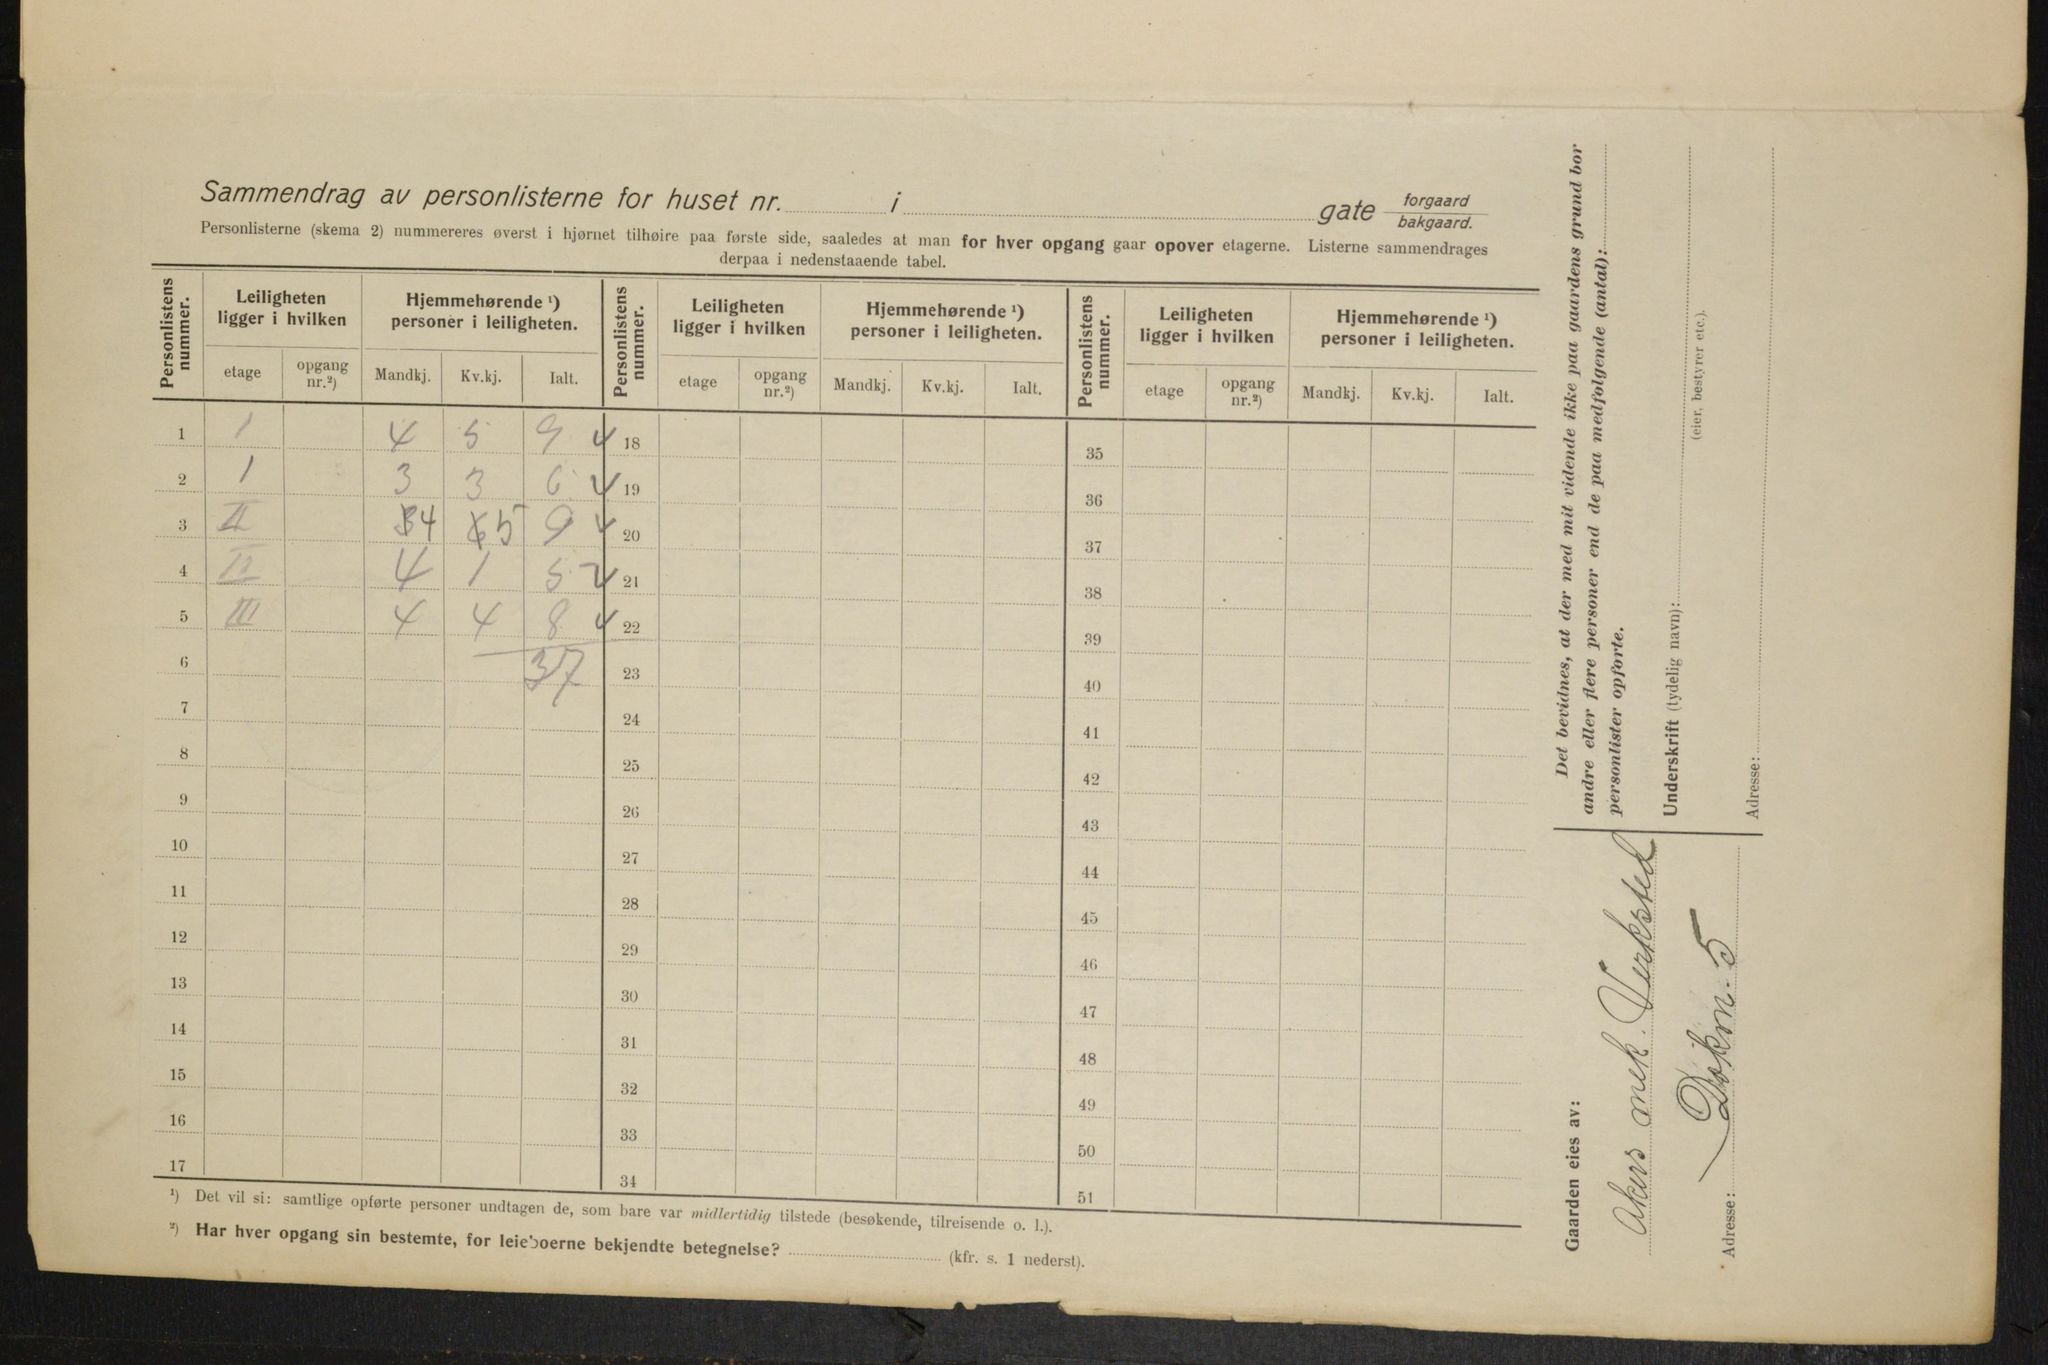 Sammendrag av personlisterne for huset nr. i gate forgaard bakgaard.
Personlisterne (skema 2) nummereres øverst i hjørnet tilhøire paa første side, saaledes at man for hver opgang gaar opover etagerne. Listerne sammendrages
derpaa i nedenstaaende tabel.
Personlistens nummer. Leiligheten ligger i hvilken Hjemmehørende ¹) personer i leiligheten. Personlistens nummer. Leiligheten ligger i hvilken Hjemmehørende ¹) personer i leiligheten. Personlistens nummer. Leiligheten ligger i hvilken Hjemmehørende ¹) personer i leiligheten.
etage opgang nr.²) Mandkj. Kv.kj. Ialt. etage opgang nr.²) Mandkj. Kv.kj. Ialt. etage opgang nr.²) Mandkj. Kv.kj. Ialt.
1 1 4 5 9 18 35
2 1 3 3 6 19 36
3 II 4 5 9 20 37
4 II 4 1 5 21 38
5 III 4 4 8 22 39
6 37 23 40
7 24 41
8 25 42
9 26 43
10 27 44
11 28 45
12 29 46
13 30 47
14 31 48
15 32 49
16 33 50
17 34 51
¹) Det vil si: samtlige opførte personer undtagen de, som bare var midlertidig tilstede (besøkende, tilreisende o. l.).
²) Har hver opgang sin bestemte, for leieboerne bekjendte betegnelse? (kfr. s. 1 nederst).
Det bevidnes, at der med mit vidende ikke paa gaardens grund bor
andre eller flere personer end de paa medfølgende (antal):
personlister opførte.
Underskrift (tydelig navn):
(eier, bestyrer etc.).
Adresse:
Gaarden eies av:
Akers mek. Verksted
Adresse: Dokm. 5